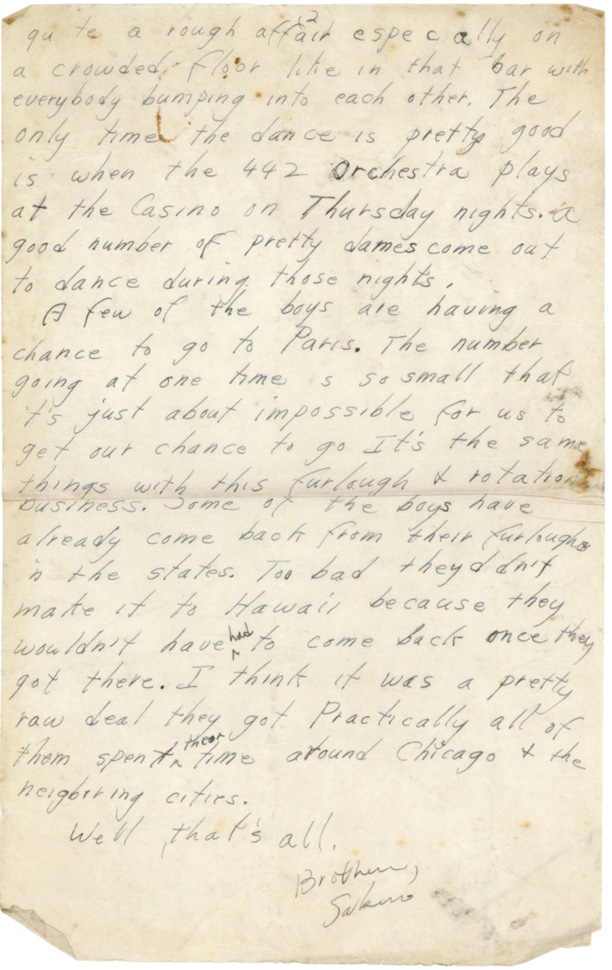 2
qu te a rough affair especially on
a crowded floor like in that bar with
everybody bumping into each other. The
only time the dance is pretty good
is when the 442 Orchestra plays
at the Casino on Thursday nights. a
good number of pretty dames come out
to dance during those nights.
A few of the boys are having a
chance to go to Paris. The number
going at one time s so small that
t's just about impossible for us to
get our chance to go It's the same
things with this furlough & rotation
business. Some of the boys have
already come back from their furloughs
n the states. Too bad they d dn't
make it to Hawaii because they
wouldn't have had to come back once they
got there. I think it was a pretty
raw deal they got Practically all of
them spent their time around Chicago & the
neighboring cities.
Well that's all.
Brother,